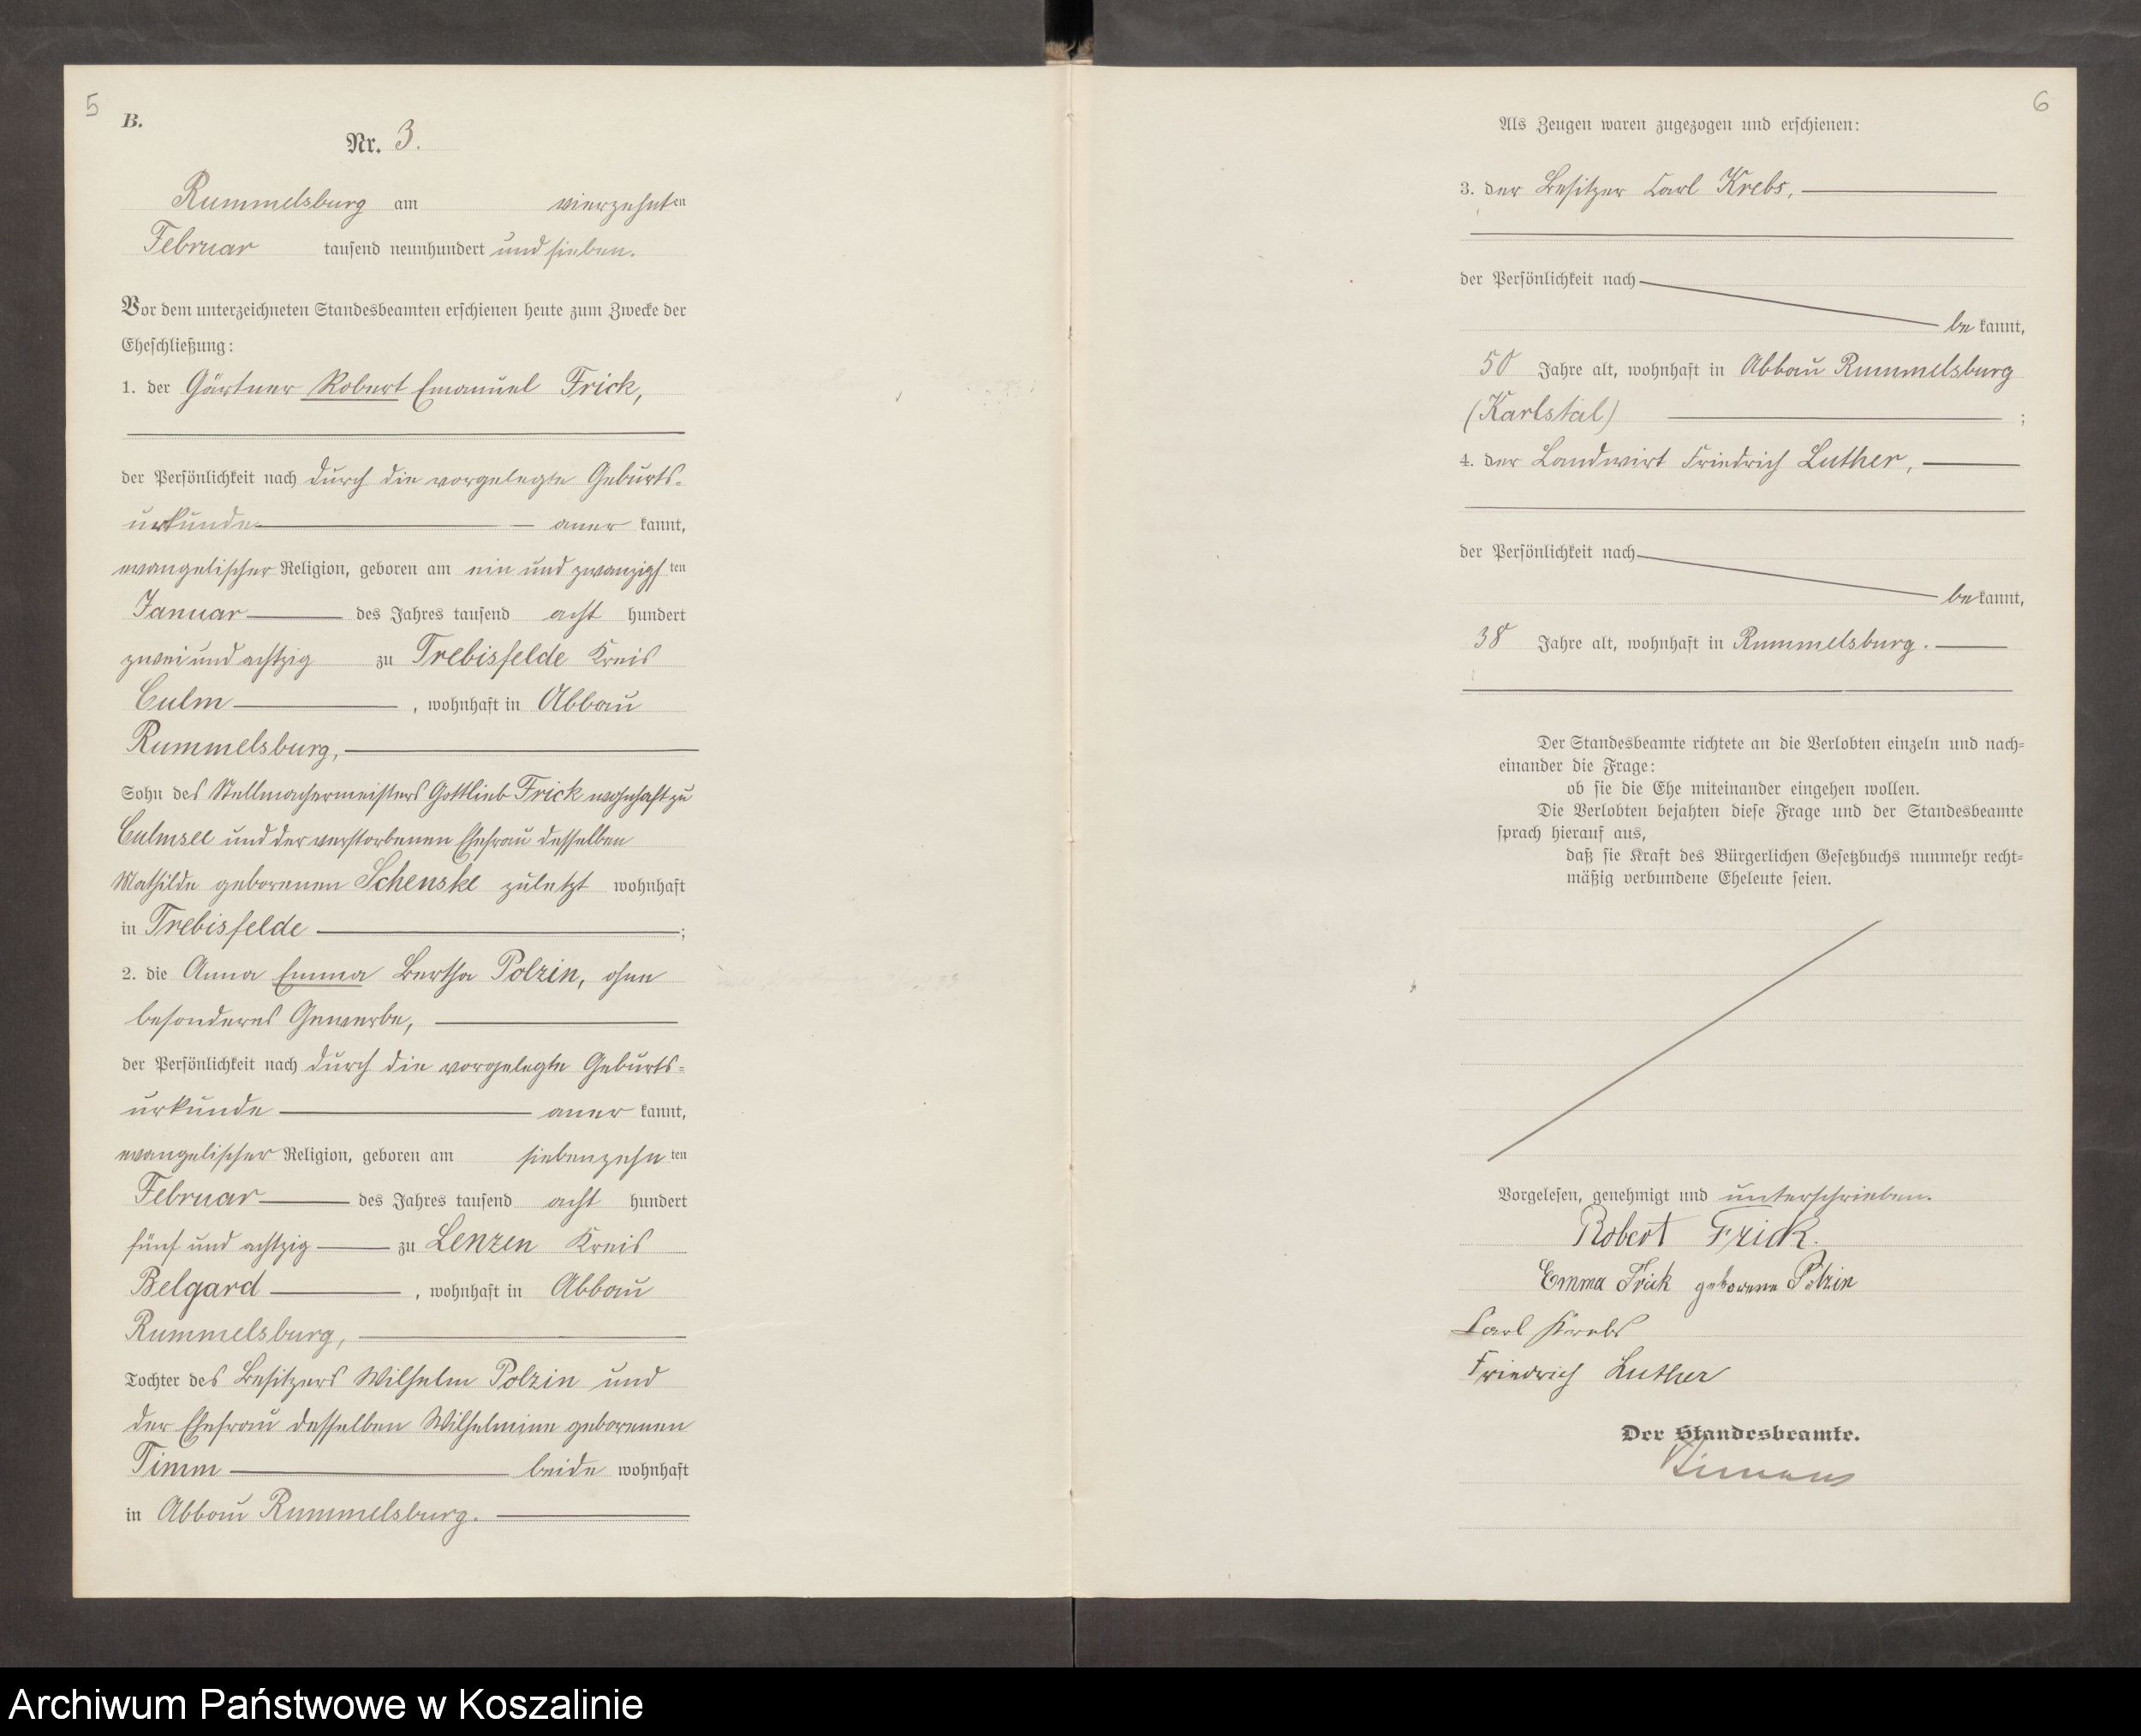 5
B.
Nr. 3.
Rummelsburg am vierzehnten
Februar tausend neunhundert und sieben.
Vor dem unterzeichneten Standesbeamten erschienen heute zum Zwecke der
Eheschließung:
1. der Gärtner Robert Emanuel Frick,
der Persönlichkeit nach durch die vorgelegte Geburts-
urkunde aner kannt,
evangelischer Religion, geboren am ein und zwanzigsten
Januar des Jahres tausend acht hundert
zwei und achtzig zu Trebisfelde Kreis
Culm, wohnhaft in Abbau
Rummelsburg,
Sohn des Stellmachermeisters Gottlieb Frick wohnhaft zu
Culmsee und der verstorbenen Ehefrau desselben
Mathilde geborenen Schenske zuletzt wohnhaft
in Trebisfelde;
2. die Anna Emma Bertha Polzin, ohne
besonderes Gewerbe,
der Persönlichkeit nach durch die vorgelegte Geburts-
urkunde aner kannt,
evangelischer Religion, geboren am siebenzehnten
Februar des Jahres tausend acht hundert
fünf und achtzig zu Lenzen Kreis
Belgard, wohnhaft in Abbau
Rummelsburg,
Tochter des Besitzers Wilhelm Polzin und
der Ehefrau desselben Wilhelmine geborenen
Timm beide wohnhaft
in Abbau Rummelsburg.
6
Als Zeugen waren zugezogen und erschienen:
3. der Besitzer Carl Krebs,
der Persönlichkeit nach
be kannt,
50 Jahre alt, wohnhaft in Abbau Rummelsburg
(Karlstal);
4. der Landwirt Friedrich Luther,
der Persönlichkeit nach
be kannt,
38 Jahre alt, wohnhaft in Rummelsburg.
Der Standesbeamte richtete an die Verlobten einzeln und nach-
einander die Frage:
ob sie die Ehe miteinander eingehen wollen.
Die Verlobten bejahten diese Frage und der Standesbeamte
sprach hierauf aus,
daß sie Kraft des Bürgerlichen Gesetzbuchs nunmehr recht-
mäßig verbundene Eheleute seien.
Vorgelesen, genehmigt und unterschrieben.
Robert Frick.
Emma Frick geborene Polzin
Carl Krebs
Friedrich Luther
Der Standesbeamte.
Archiwum Państwowe w Koszalinie